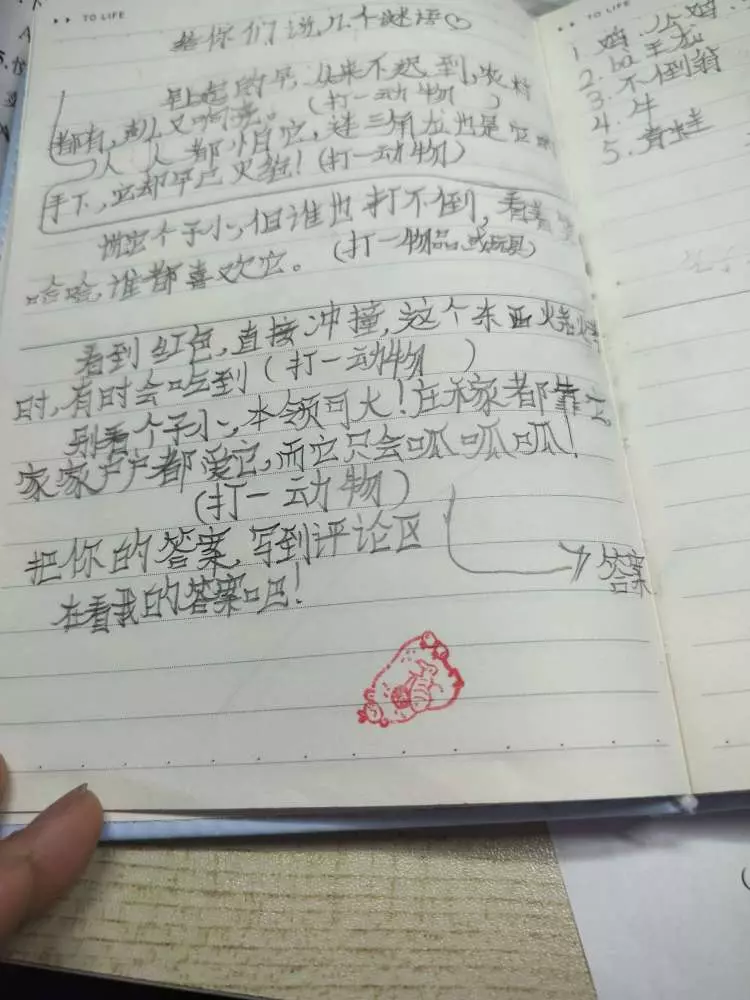 TO LIFE
给你们说几个谜语
早上起的早，从来不迟到，农村
都有，声儿又响亮。（打一动物）
人人都怕它，连三角龙也是它的
手下，它却早已灭绝！（打一动物）
别看个子小，但谁也打不倒，看着笑
哈哈，谁都喜欢它。（打一物品或玩具）
看到红色，直接冲撞，这个东西烧烤
时，有时会吃到（打一动物）
别看个子小，本领可大！庄稼都靠它，
家家户户都爱它，而它只会呱呱呱！
（打一动物）
把你的答案，写到评论区
在看我的答案吧！
答案
TO LIFE
1. 鸡．公鸡．
2. 霸王龙
3. 不倒翁
4. 牛
5. 青蛙